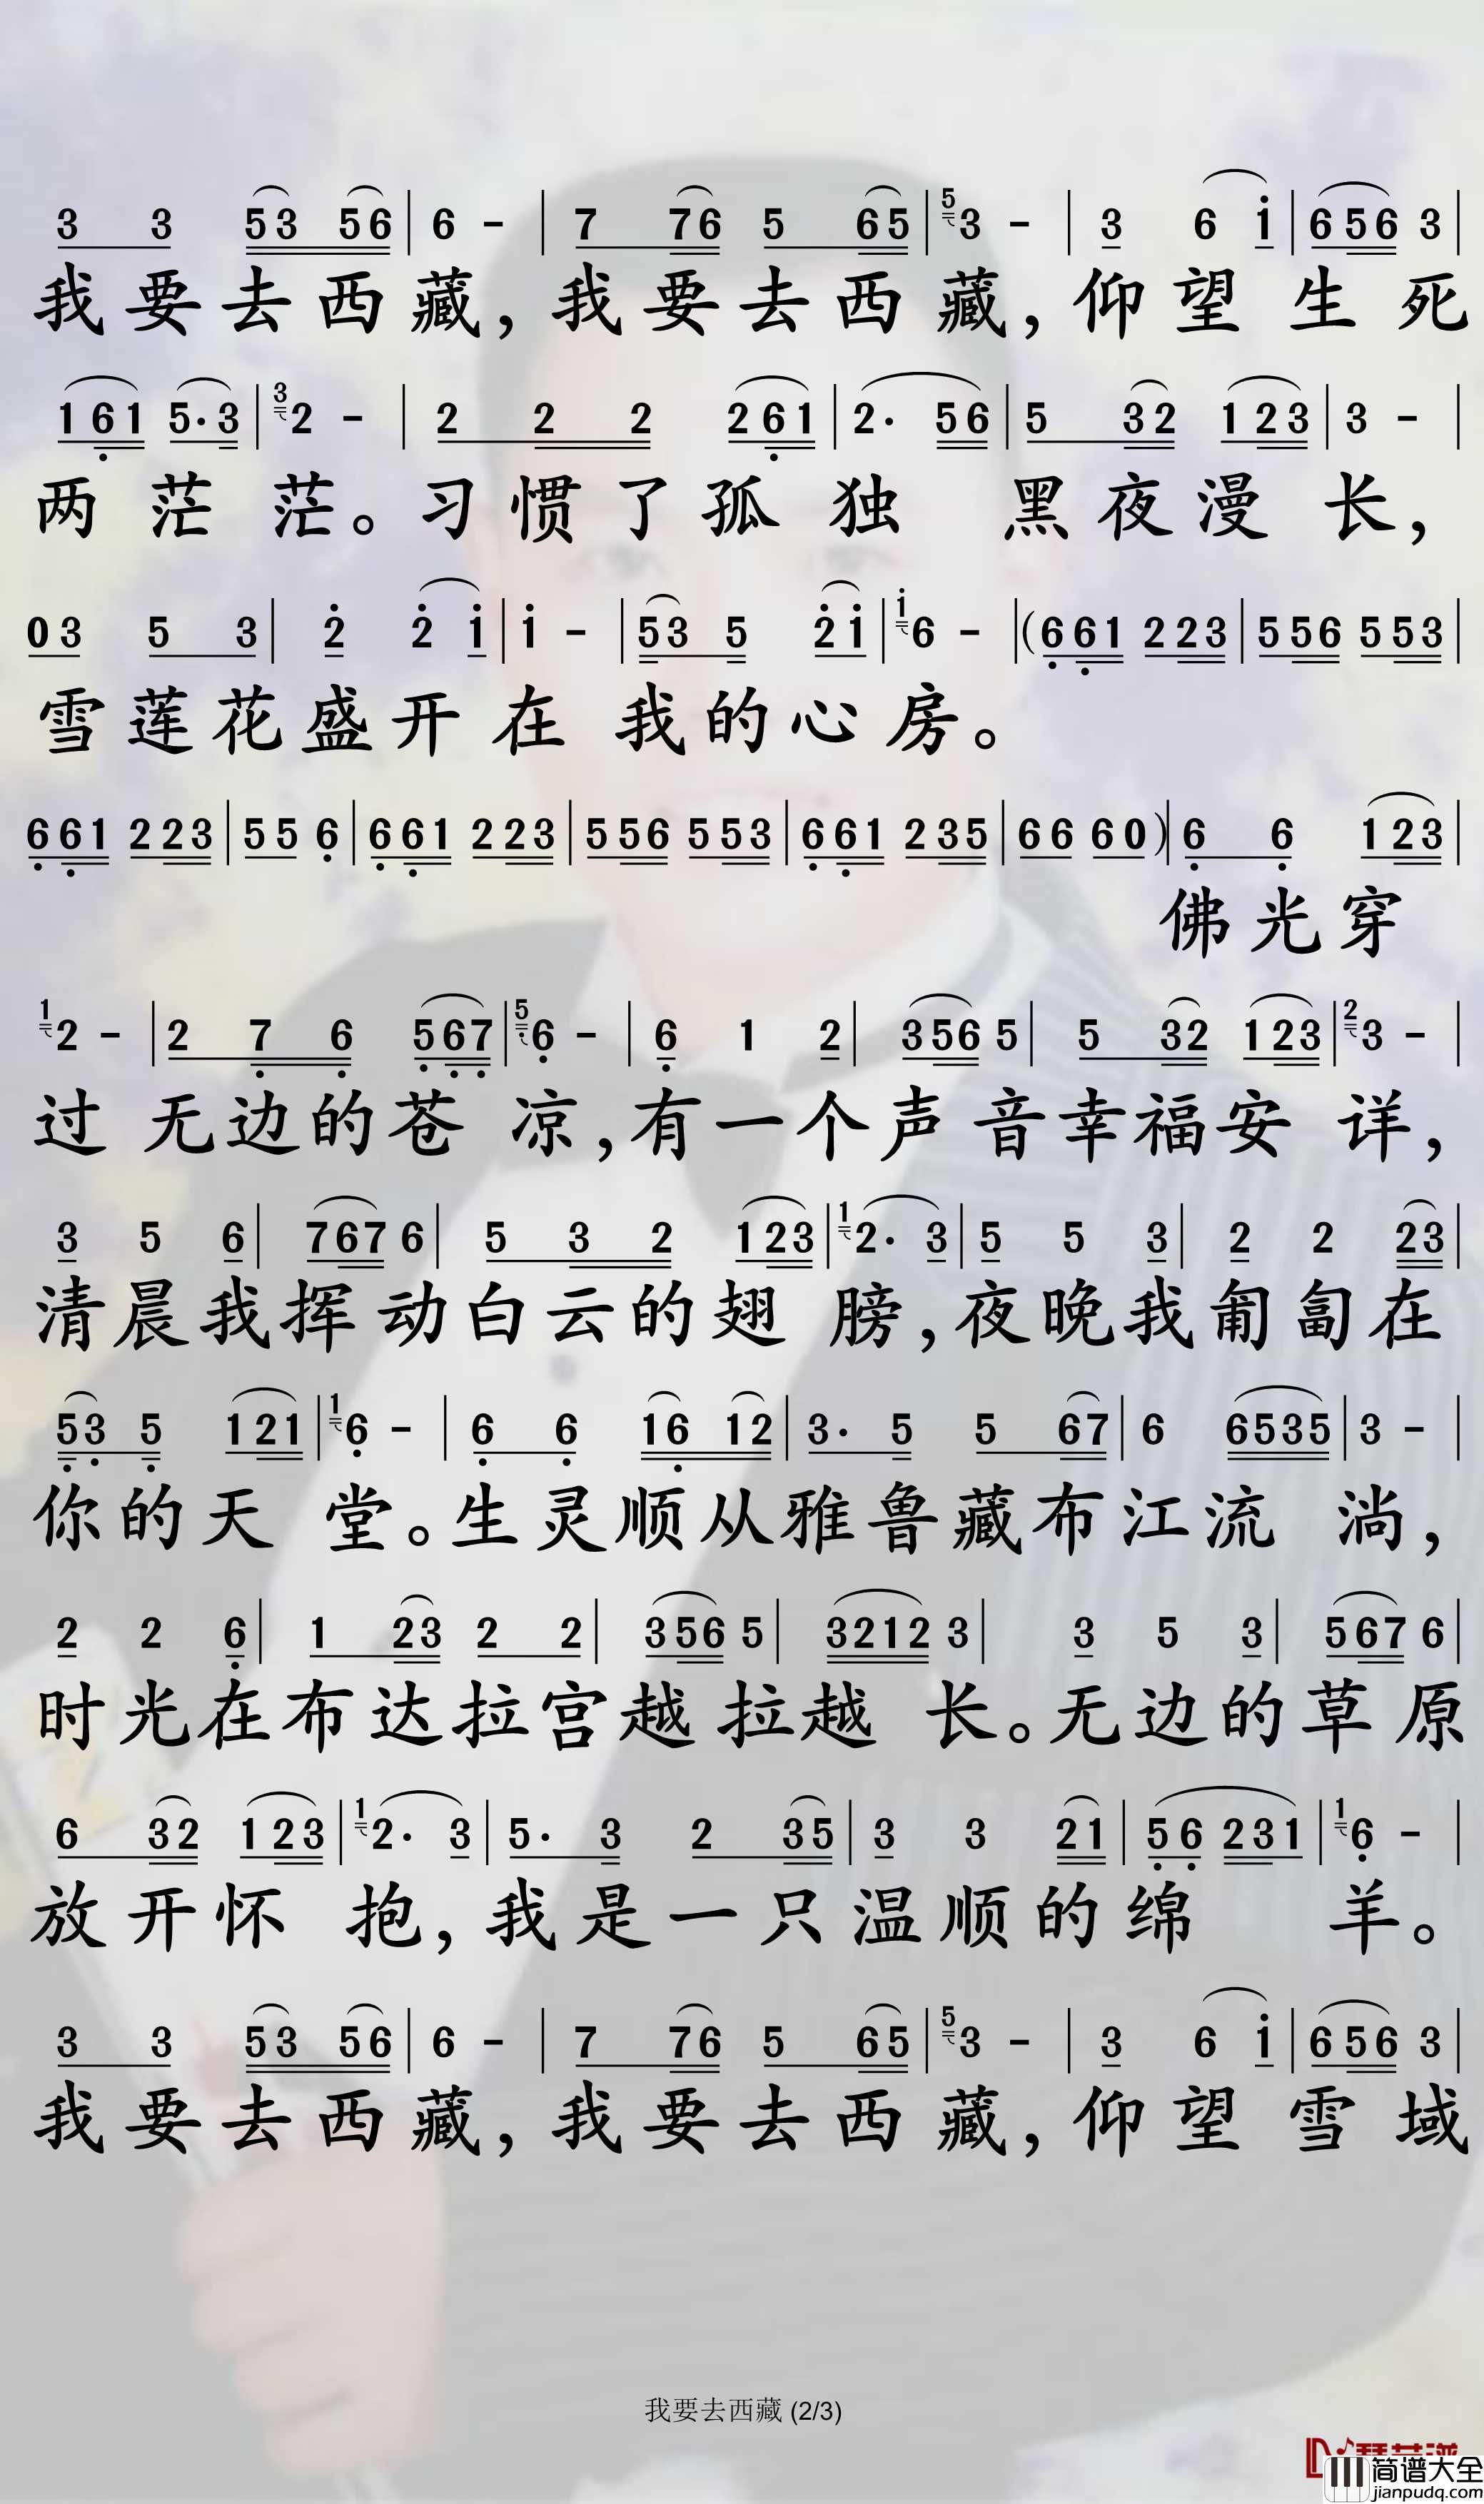 3 3 53 56 | 6 - | 7 76 5 65 | 5 3 - | 3 6 i | 656 3 |
我要去西藏，我要去西藏，仰望生死
1 61 5·3 | 3 2 - | 2 2 2 261 | 2· 56 | 5 32 123 | 3 - |
两茫茫。习惯了孤独 黑夜漫长，
03 5 3 | 2 2 i | i - | 53 5 2i | i 6 - | (661 223 | 556 553 |
雪莲花盛开在 我的心房。
661 223 | 55 6 | 661 223 | 556 553 | 661 235 | 66 60) | 6 6 123 |
佛光穿
1 2 - | 2 7 6 567 | 5 6 - | 6 1 2 | 356 5 | 5 32 123 | 2 3 - |
过 无边的苍 凉，有一个声音幸福安 详，
3 5 6 | 767 6 | 5 3 2 123 | 1 2· 3 | 5 5 3 | 2 2 23 |
清晨我挥动白云的翅 膀，夜晚我匍匐在
53 5 121 | 1 6 - | 6 6 16 12 | 3· 5 5 67 | 6 6535 | 3 - |
你的天 堂。生灵顺从雅鲁藏布江流 淌，
2 2 6 | 1 23 2 2 | 356 5 | 3212 3 | 3 5 3 | 567 6 |
时光在布达拉宫越拉越 长。无边的草原
6 32 123 | 1 2· 3 | 5· 3 2 35 | 3 3 21 | 56 231 | 1 6 - |
放开怀 抱，我是一只温顺的绵 羊。
3 3 53 56 | 6 - | 7 76 5 65 | 5 3 - | 3 6 i | 656 3 |
我要去西藏，我要去西藏，仰望雪域
我要去西藏 (2/3)
简谱大全
jianpudq.com